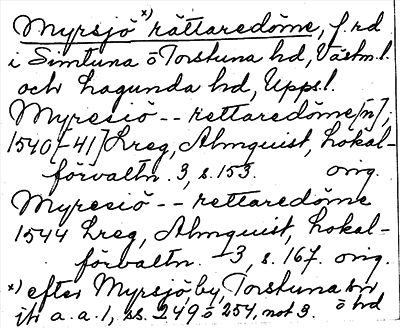 Myrsjö x) rättaredöme, f. rd
i Simtuna o Torstuna hd, Västm. l.
och Lagunda hd, Uppsl.
Myresiö -- rettaredöme[n],
1540[-41] Lreg, Almquist, Lokal-
förvaltn. 3, s. 153. orig.
Myresiö -- rettaredöme
1544 Lreg, Almquist, Lokal-
förvaltn. 3, s. 167. orig.
x) efter Myrsjö, by, Torstuna sn
jfr a. a. 1, ss. 249 o 254, not 3. o hd